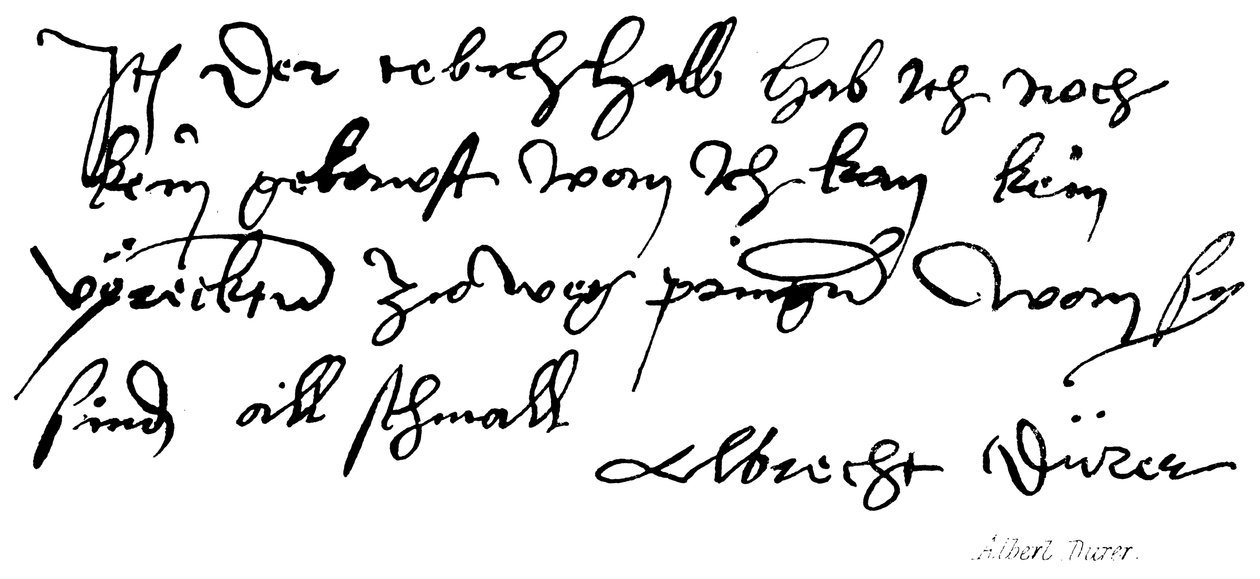 Itm der tebich halb hab Ich noch
kein gekawft wan Ich kan kein
vÿreckten zw weg pringen wan sy
sind all schmall
Albrecht Dürer
Albert Durer.